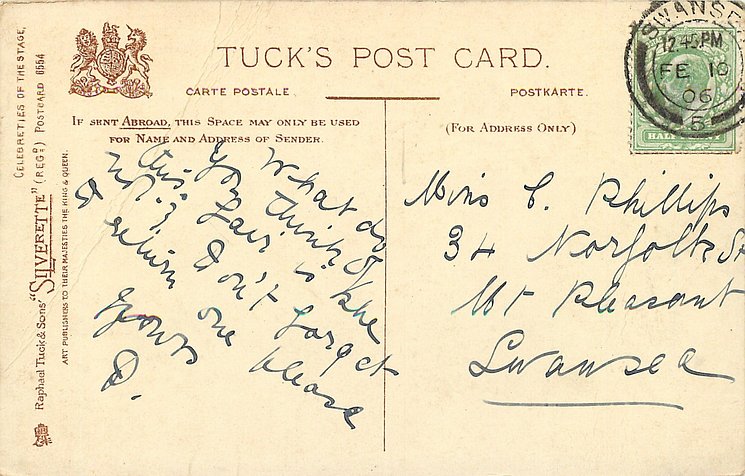 TUCK'S POST CARD.
CARTE POSTALE.
POSTKARTE.
IF SENT ABROAD, THIS SPACE MAY ONLY BE USED
FOR NAME AND ADDRESS OF SENDER.
(FOR ADDRESS ONLY)
CELEBRETIES OF THE STAGE,
Raphael Tuck & Sons' "SILVERETTE" (REGD) POSTCARD 6554
ART PUBLISHERS TO THEIR MAJESTIES THE KING & QUEEN.
SWANSEA
12 45 PM
FE 10
06
5
HALF
What do
you think of
this. fair is she
not? Don't forget
& return one please
Yours
D.
Miss C. Phillips
34 Norfolk St
Mt Pleasant
Swansea